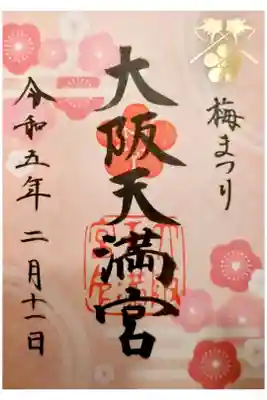 梅まつり
大阪天満宮
令和五年 二月十一日